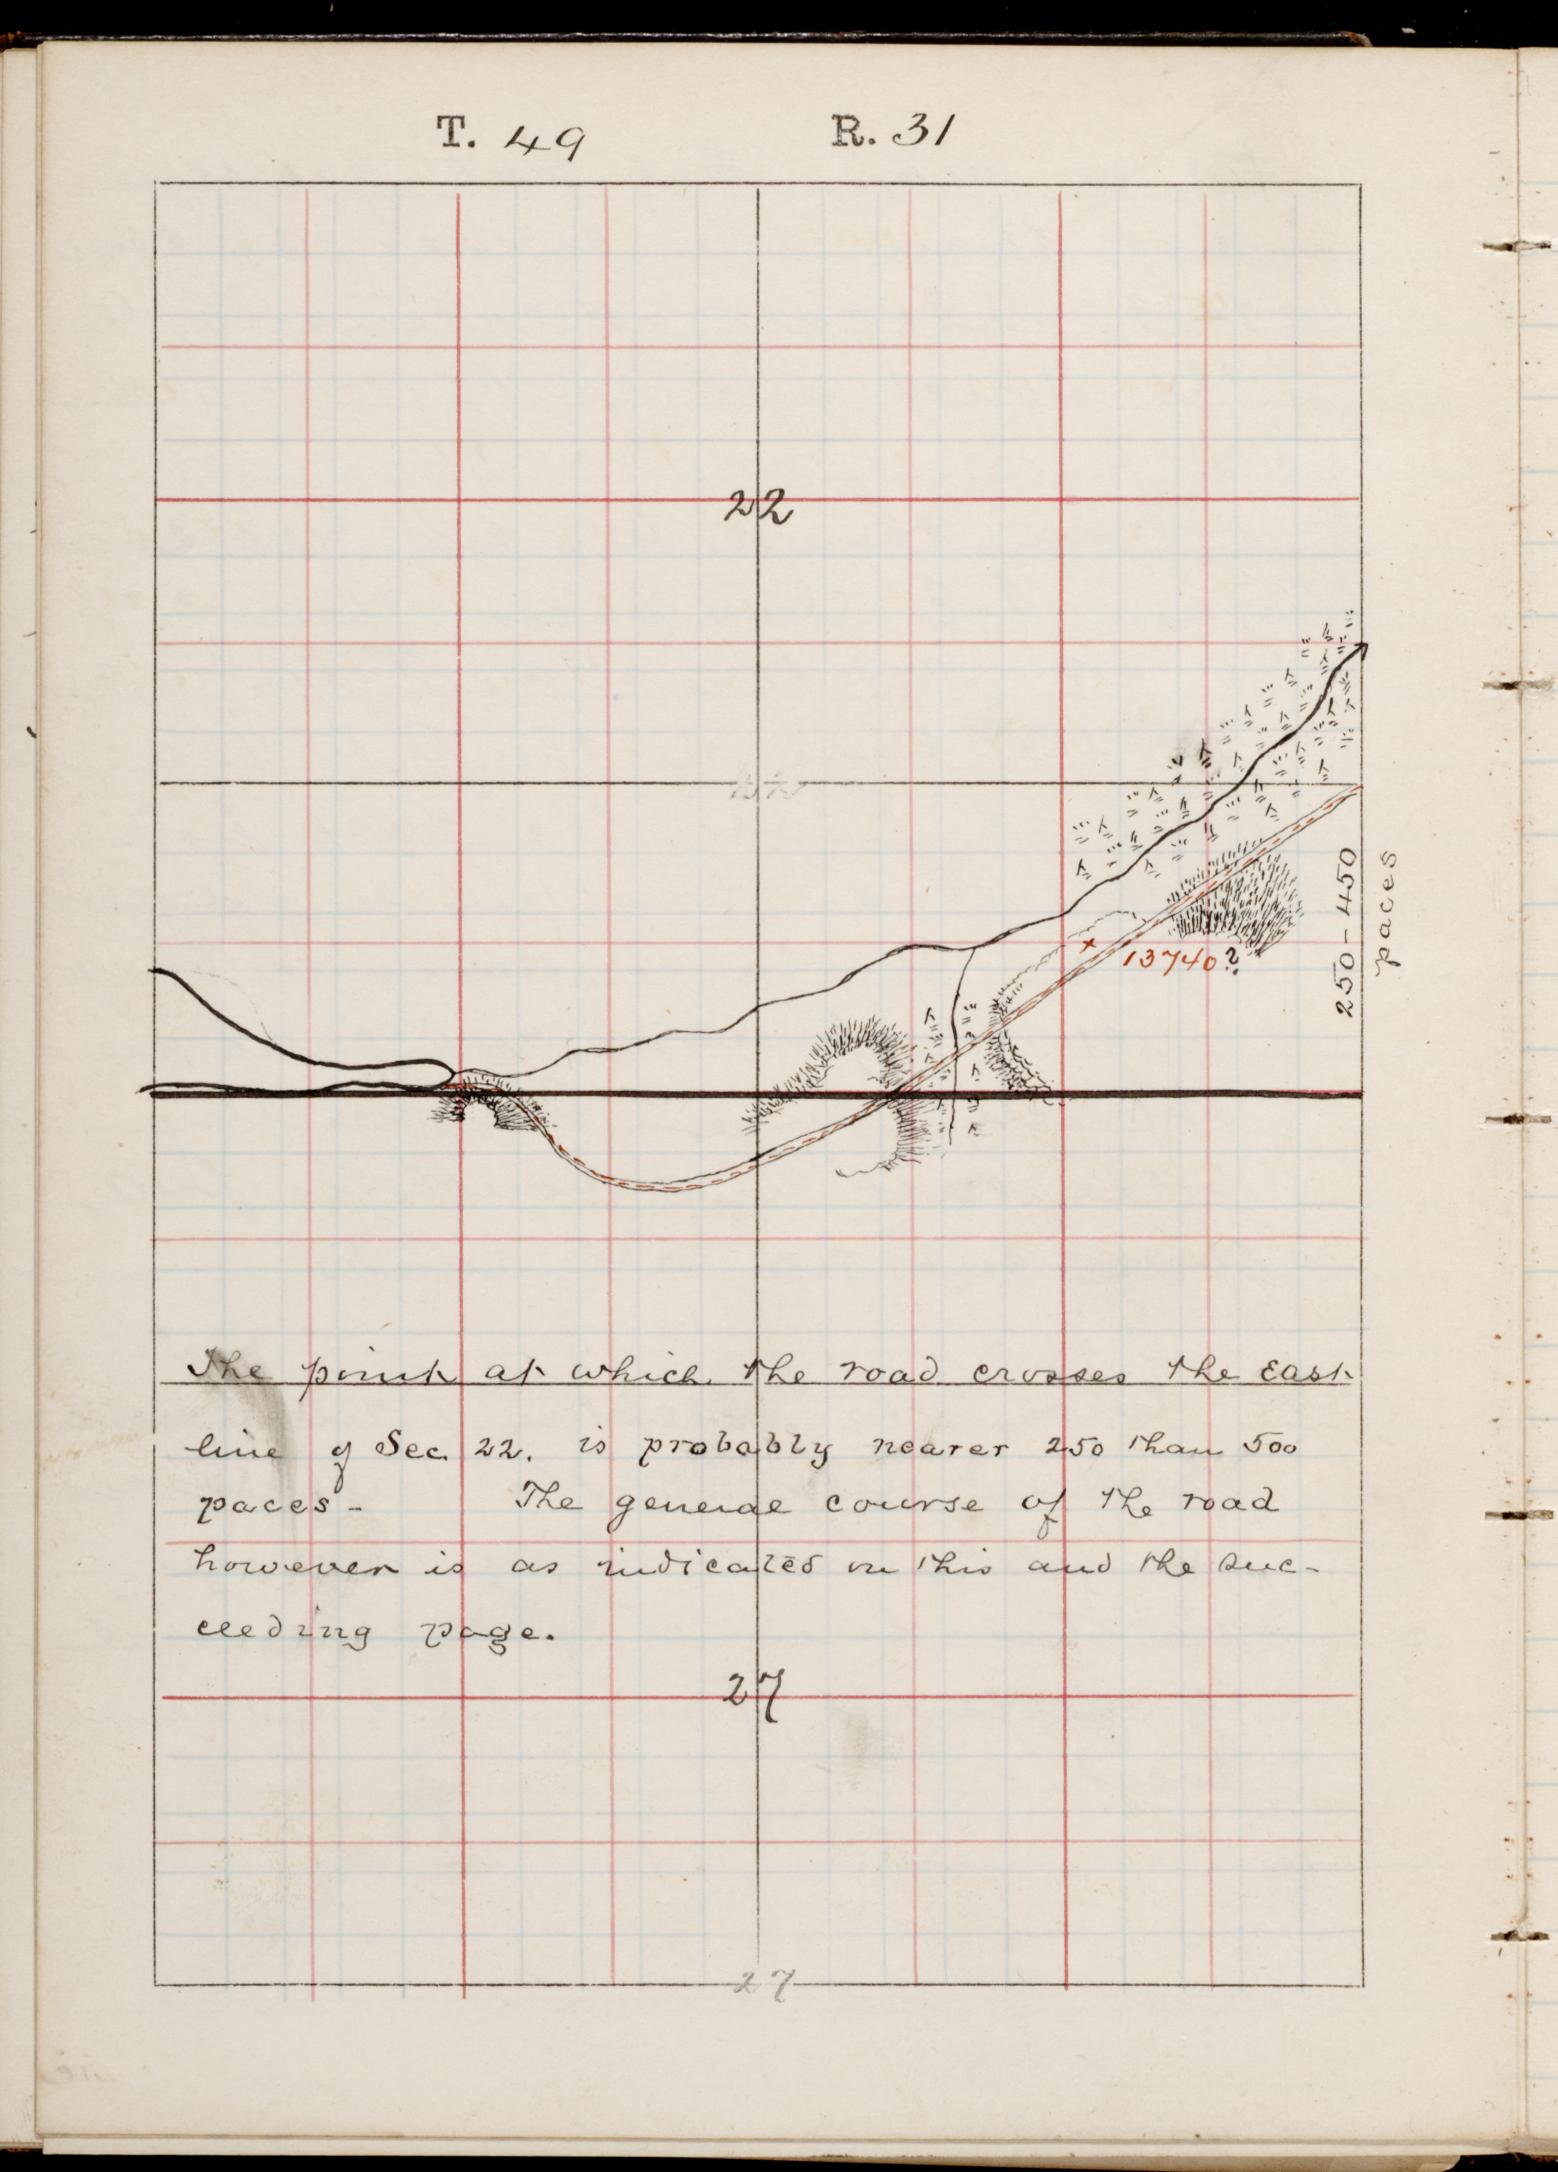 T. 49 R. 31
22
13740?
250-450
paces
The point at which the road crosses the East
line of Sec. 22. is probably nearer 250 than 500
paces - The general course of the road
however is as indicated on this and the suc-
ceeding page.
27
27